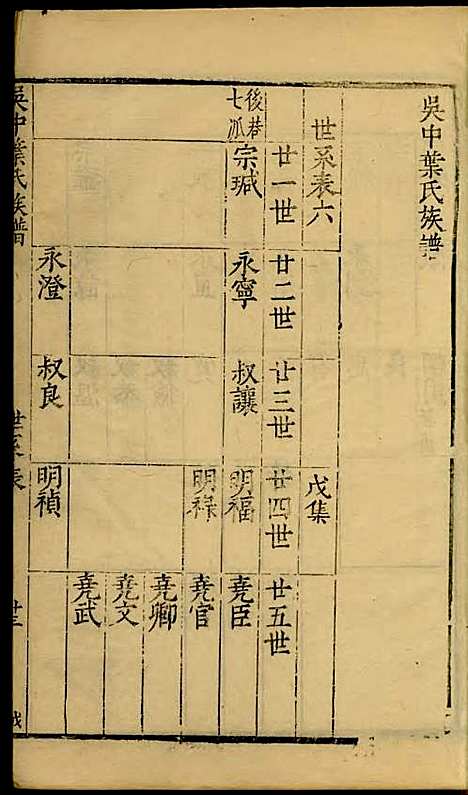 吳中葉氏族譜
世系表六
戊集
廿一世
廿二世
廿三世
廿四世
廿五世
後巷
七泒
宗瑊
永寧
叔讓
明福
堯臣
明祿
堯官
堯卿
堯文
堯武
永澄
叔良
明禎
吳中葉氏族譜
世系表